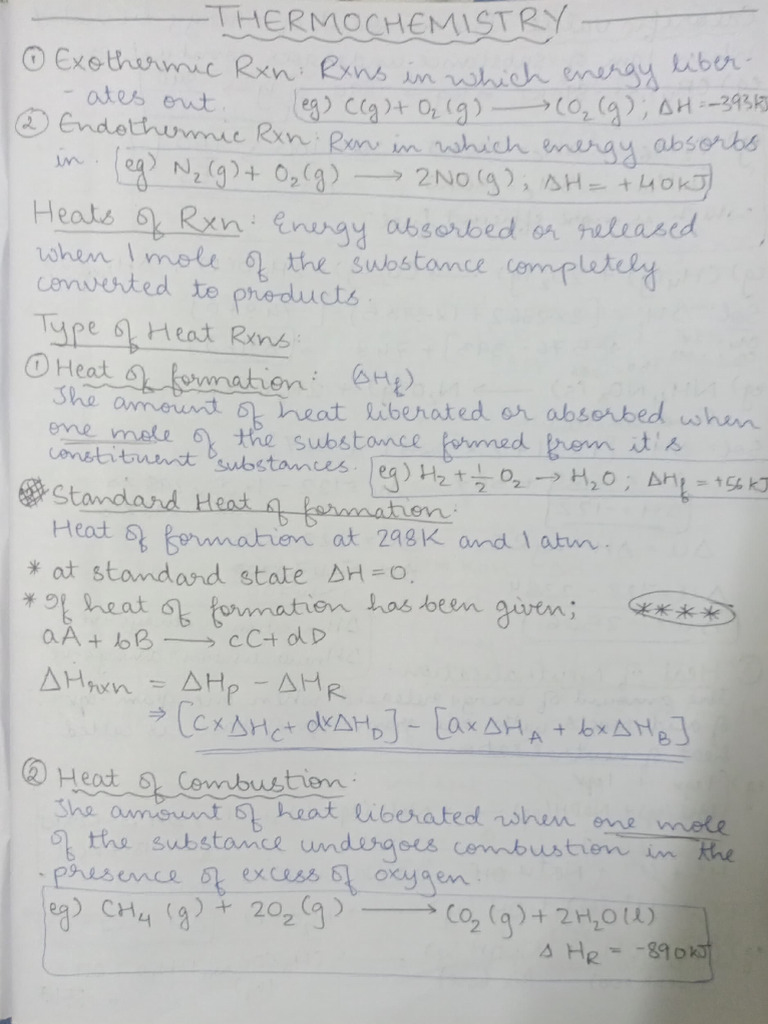 THERMOCHEMISTRY
① Exothermic Rxn: Rxns in which energy liber-
-ates out. eg) C(g) + O₂(g) ⟶ CO₂(g); ΔH = -393kJ
② Endothermic Rxn: Rxn in which energy absorbs
in. eg) N₂(g) + O₂(g) ⟶ 2NO(g); ΔH = +40kJ
Heats of Rxn: Energy absorbed or released
when 1 mole of the substance completely
converted to products.
Type of Heat Rxns:
① Heat of formation: (ΔHf)
The amount of heat liberated or absorbed when
one mole of the substance formed from it's
constituent substances. eg) H₂ + ½ O₂ → H₂O; ΔHf = +56kJ
Standard Heat of formation:
Heat of formation at 298K and 1 atm.
* at standard state ΔH = 0.
* If heat of formation has been given; ****
aA + bB ⟶ cC + dD
ΔHrxn = ΔHP - ΔHR
⇒ [C×ΔHC + d×ΔHD] - [a×ΔHA + b×ΔHB]
② Heat of Combustion:
The amount of heat liberated when one mole
of the substance undergoes combustion in the
presence of excess of oxygen.
eg) CH₄(g) + 2O₂(g) ⟶ CO₂(g) + 2H₂O(l)
ΔHR = -890kJ